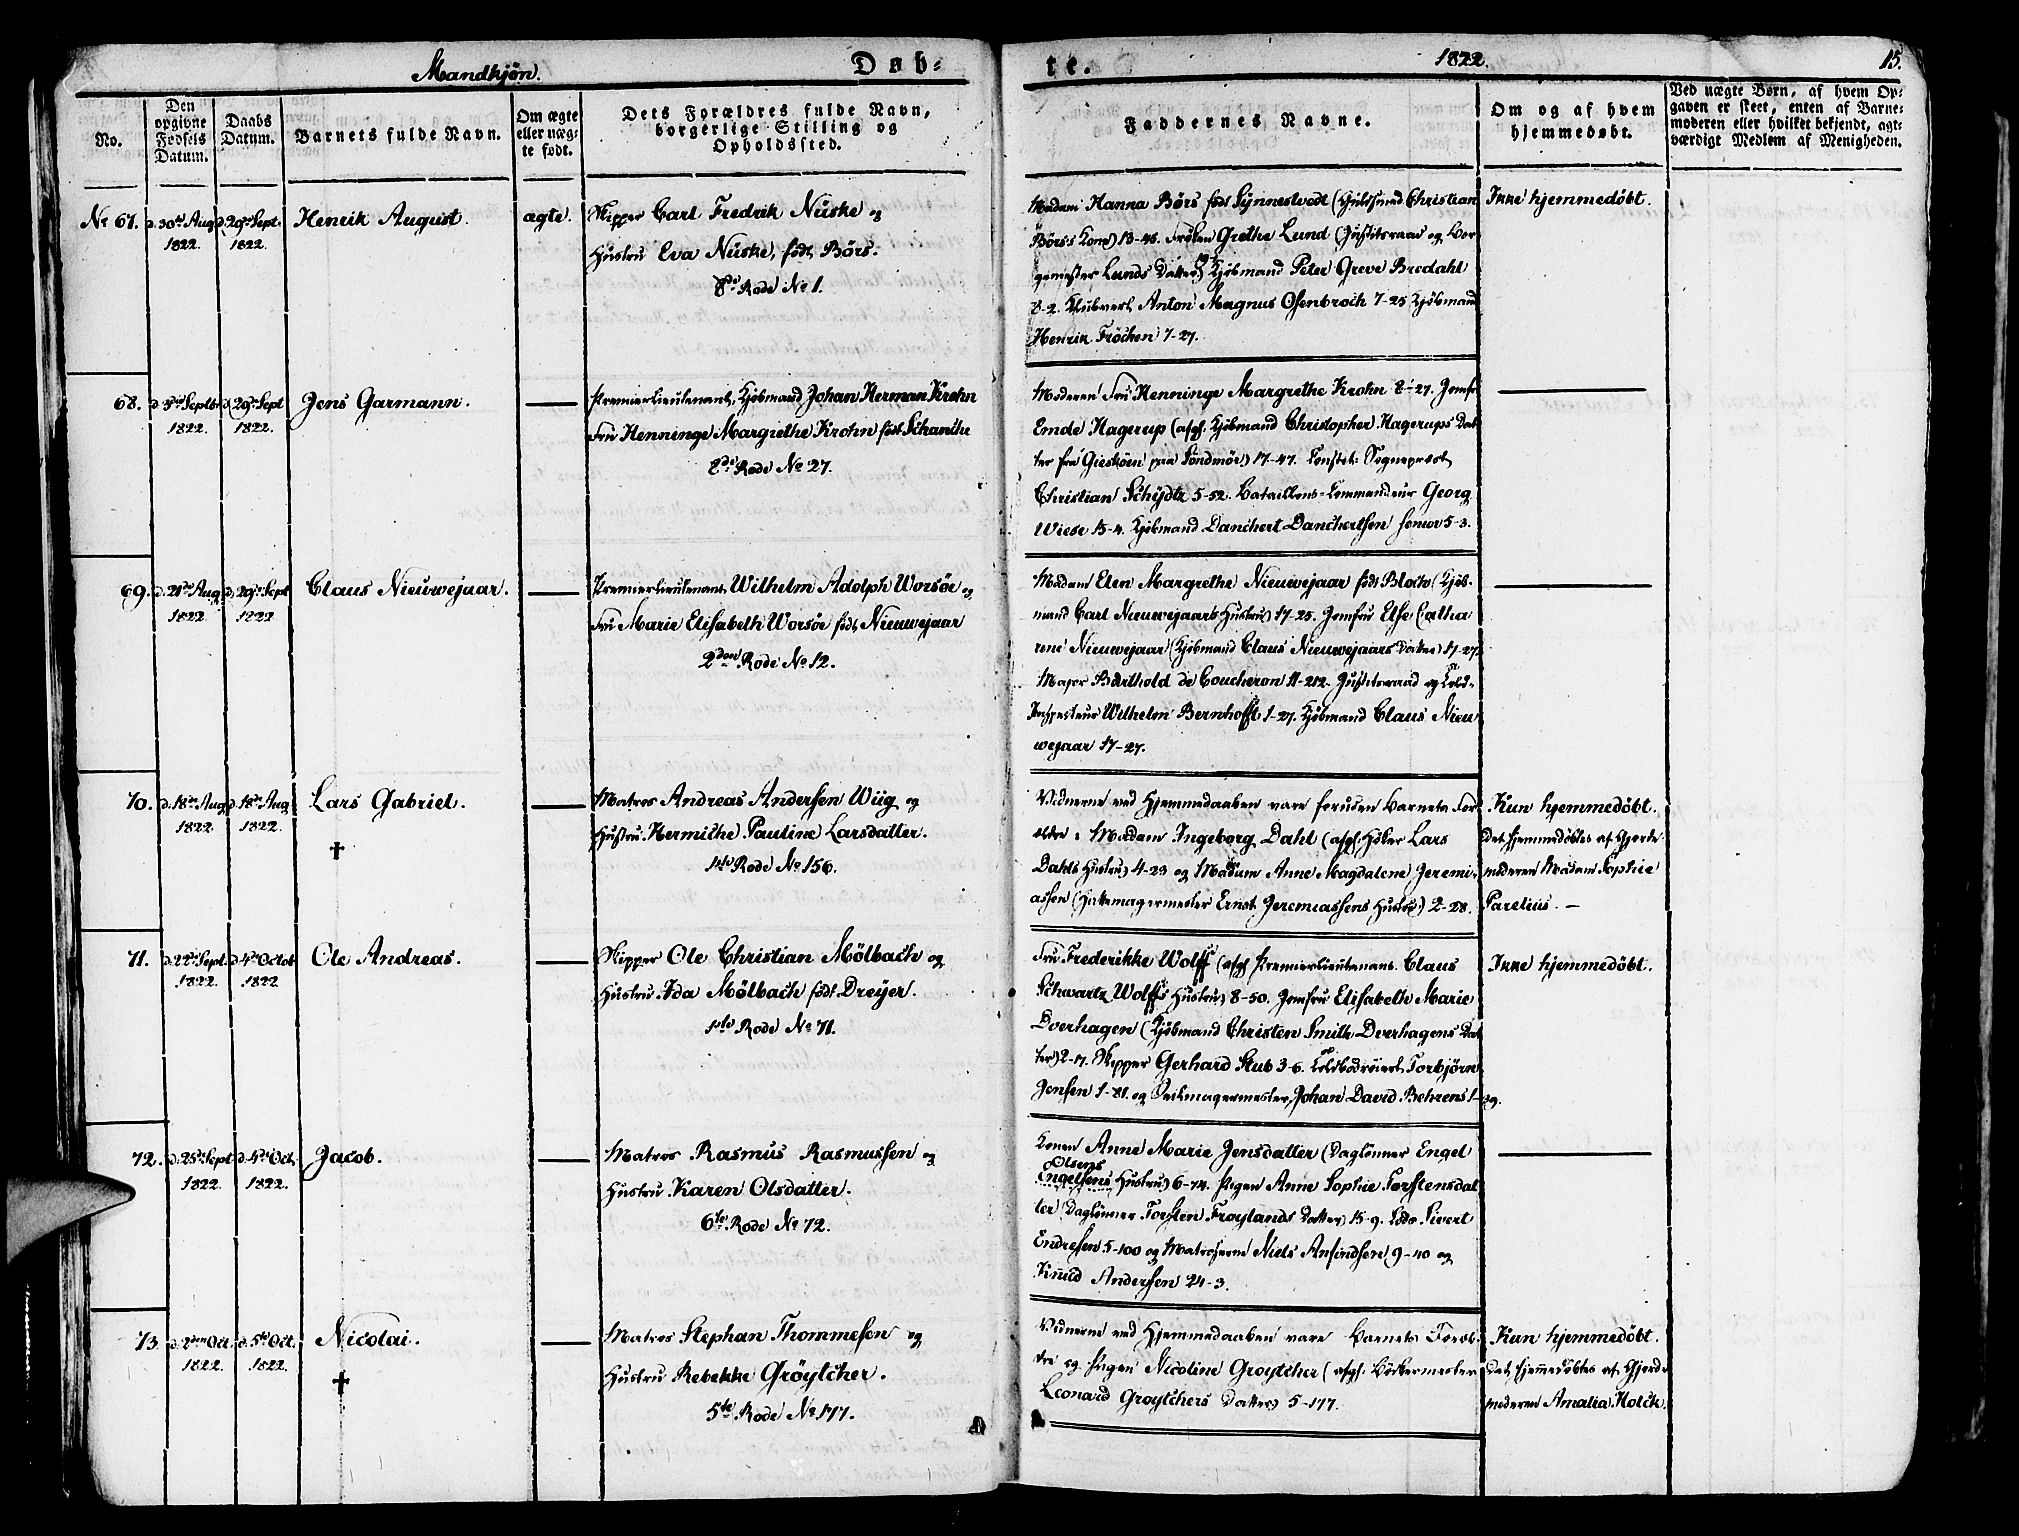 Mandkjøn.
Døb-
te.
1822.
15.
No.
Den opgivne Fødsels Datum.
Daabs Datum.
Barnets fulde Navn.
Om ægte eller uægte født.
Dets Forældres fulde Navn, borgerlige Stilling og Opholdssted.
Faddernes Navne.
Om og af hvem hjemmedøbt.
Ved uægte Børn, af hvem Opgaven er skeet, enten af Barnemoderen eller hvilket bekjendt, agtværdigt Medlem af Menigheden.
No 67.
d. 30te Aug 1822.
d. 29de Sept. 1822.
Henrik August.
ægte.
Skipper Carl Fredrik Nüske og
Hustru Eva Nüske, født Börs.
8de Rode No 1.
Madam Hanna Börs født Synnestvedt (Christian
Börs's Kone) 13-46. Frøken Grethe Lund (Justitsraad og Bor-
gemester Lunds Datter) Kjöbmand Peter Greve Bredahl
8-2. Anton Magnus Osenbroch 7-25 Kjöbmand
Henrik Fröchen 7-27.
Ikke hjemmedöbt.
68.
d. 5te Septbr 1822.
d. 29de Sept 1822.
Jens Garmann.
Premierlieutenant, Kjöbmand Johan Herman Krohn
Fru Henninge Margrethe Krohn født Schanche
8de Rode No 27.
Moderen Fru Henninge Margrethe Krohn 8-27. Jomfr
Emde Hagerup (afgl. Kjöbmand Christopher Hagerups Dat
ter fra Gieskøen paa Söndmör) 17-47. Constit: Sognepræst
Christian Schydtz 5-52. Bataillons-Commandeur Georg
Wiese 15-4. Kjöbmand Danchert Danchertsen senior 5-3.
69.
d. 21de Aug 1822.
d. 29de Sept 1822
Claus Nieuwejaar.
Premierlieutenant Wilhelm Adolph Worsöe og
Fru Marie Elisabeth Worsöe født Nieuwejaar
2den Rode No 12.
Madam Elen Margrethe Nieuwejaar født Bloch (Kjöb-
mand Carl Nieuwejaars Hustru) 17-25. Jomfru Else Catha
rine Nieuwejaar (Kjöbmand Claus Nieuwejaars Datter) 17-27
Major Barthold de Coucheron 11-212. Justitsraad og Told-
Inspecteur Wilhelm Bernhofft 1-27. Kjöbmand Claus Nieu
wejaar 17-27.
70.
d. 18de Aug 1822
d. 18de Aug 1822.
Lars Gabriel.
†
Matros Andreas Andersen Wiig og
Hustru Hermiche Pauline Larsdatter.
1ste Rode No 156.
Vidnerne ved Hjemmedaaben vare foruden Barnets For-
ældre: Madam Ingeborg Dahl (afgl. Höker Lars
Dahls Hustru) 4-23 og Madam Anne Magdalene Jeremi-
assen (Hattemagermester Ernst Jeremiassens Hustru) 2-28.
Kun hjemmedöbt.
Det hjemmedöbtes af Gjorde-
moderen Madam Sophie
Parelius. —
71.
d. 22de Sept. 1822.
d. 4de Octob 1822
Ole Andreas.
Skipper Ole Christian Mölbach og
Hustru Ida Mölbach født Dreyer.
1ste Rode No 71.
Fru Frederikke Wolff (afgl Premierlieutenant Claus
Schwartz Wolff's Hustru) 8-50. Jomfru Elisabeth Marie
Dverhagen (Kjöbmand Christen Smith Dverhagens Dat
ter) 2-17. Skipper Gerhard Stub 3-6. Torbjörn
Jensen 1-81. og Seilmagermester Johan David Behrens 1-39.
Ikke hjemmedöbt.
72.
d. 25de Sept 1822.
d. 4de Oct. 1822.
Jacob.
Matros Rasmus Rasmussen og
Hustru Karen Olsdatter.
6te Rode No 72.
Konen Anne Marie Jensdatter (Daglönner Engel
Olsens
Engelsens Hustru) 6-74. Pigen Anne Sophie Torstensdat
ter (Daglönner Torsten Fröylands Datter) 15-9. Lods Sivert
Endresen 5-100 og Matroserne Niels Anfindsen 9-40 og
Knud Andersen 24-3.
73.
d. 2den Oct. 1822.
d. 5te Oct. 1822.
Nicolai.
†
Matros Stephan Thommesen og
Hustru Rebekke Gröytcher.
5te Rode No 177.
Vidnerne ved Hjemmedaaben vare Barnets Foræl-
dre og Pigen Nicoline Groytcher (afgl. Böckermester
Leonard Groytchers Datter) 5-177.
Kun hjemmedöbt.
Det hjemmedöbtes af Gjorde
moderen Amalia Holck.